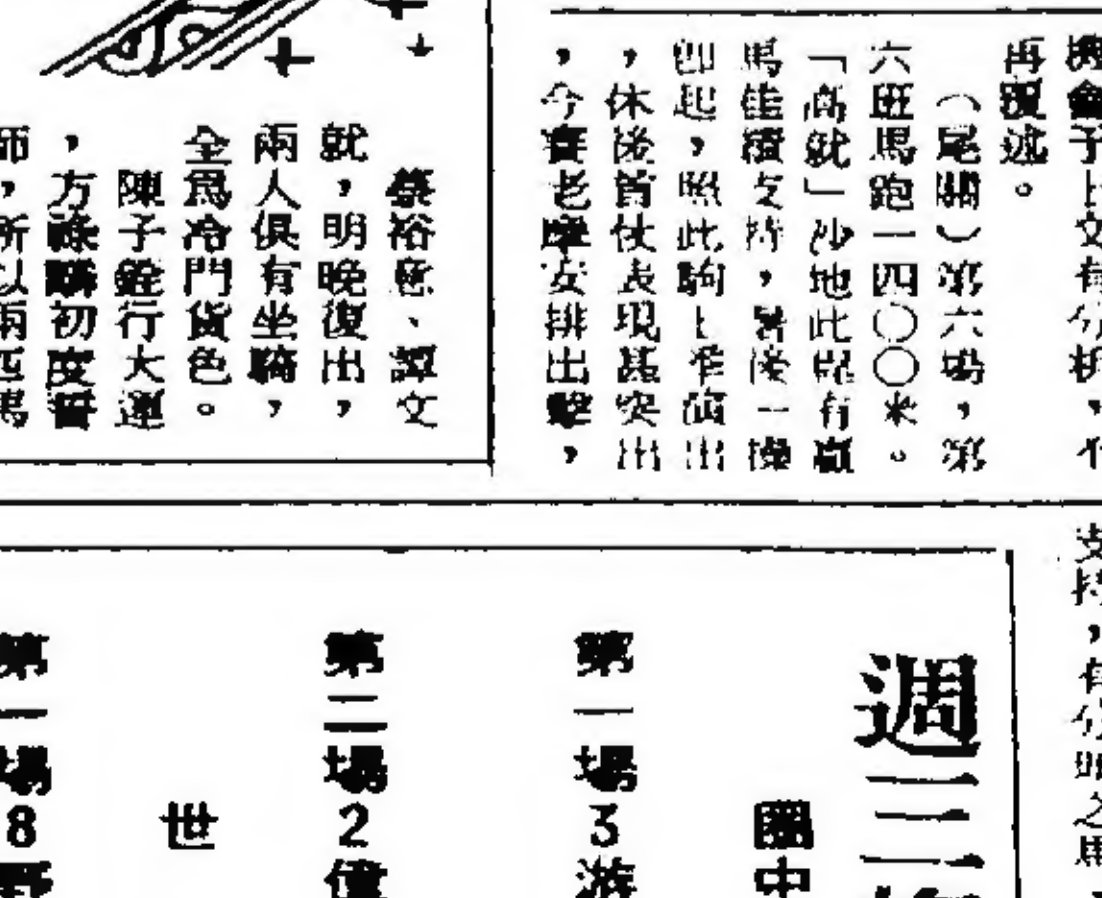 機會子上文有分析，不
再覆述。
（尾關）第六場，第
六班馬跑一四〇〇米。
「高就」沙地此程有贏
馬佳績支持，暑後一操
即起，照此駒上乍演出
，休後首仗表現甚突出
，今賽老摩安排出擊，
蔡裕慈、譚文
就，明晚復出，
兩人俱有坐騎，
全爲冷門貨色。
陳子銓行大運
，方祿麟初度晉
師，所以兩匹馬
支持，有分明之馬
週三
圈中
第一場3游
第二場2億
世
第一場8野